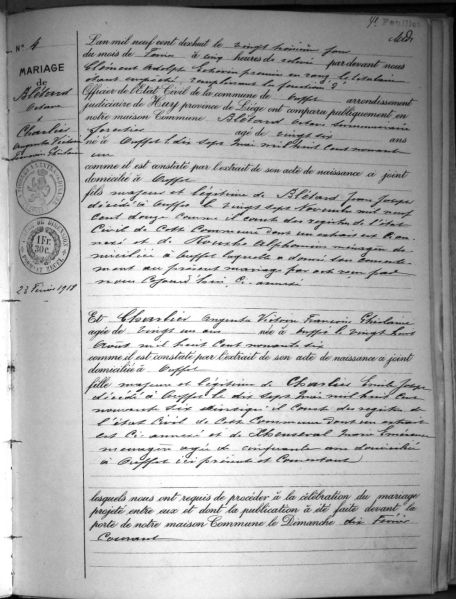 4e Feuillet
N° 4
MARIAGE
DE
Blétard
Charlier
Argenta Victoire
François Ghislaine
1 Fr.
30c.
23 Février 1918
L'an mil neuf cent dixhuit le vingt troisième jour
du mois de Février à cinq heures de relevé par devant nous
Clément Adolphe Echevin premier en rang le titulaire
étant empêché remplissant la fonction d'
Officier de l'Etat Civil de la commune de Ouffet arrondissement
judiciaire de Huy province de Liége ont comparu publiquement en
notre maison Commune Blétard
agé de vingt six ans
né à Ouffet le dix sept Mai mil huit cent nonante
un
comme il est constaté par l'extrait de son acte de naissance a joint
domicilié à Ouffet
fils majeur et légitime de Blétard Jean Joseph
décédé à Ouffet le vingt sept Novembre mil neuf
cent douze comme il conste des registres de l'état
Civil de Cette Commune dont un extrait est Ci an-
nexé et de Alphonsine ménagère do-
miciliée à Ouffet laquelle a donné son consente-
ment au présent mariage par acte reçu par
nous Ci annexé
Et Charlier Argenta Victoire François Ghislaine
agée de vingt un ans née à Ouffet le vingt huit
Août mil huit Cent nonante six
comme il est constaté par l'extrait de son acte de naissance a joint
domiciliée à Ouffet
fille majeure et légitime de Charlier Emile Joseph
décédé à Ouffet le dix sept Mai mil huit Cent
nonante six ainsi qu'il conste des registres de
l'état Civil de Cette Commune dont un extrait
est Ci annexé et de Marie
ménagère agée de cinquante ans domiciliée
à Ouffet ici présente et Consentant
lesquels nous ont requis de procéder à la célébration du mariage
projeté entre eux et dont la publication à été faite devant la
porte de notre maison Commune le Dimanche dix Février
Courant